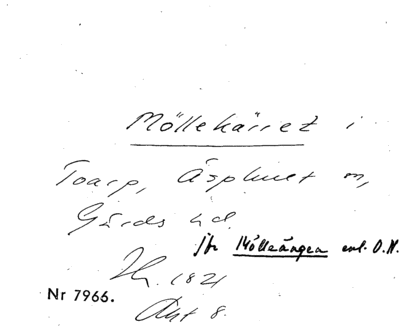 Möllekärret i
Toarp, Äsphult sn,
Gärds hd.
jfr Mölleängen enl. O.N.
1821
Nr 7966.
Akt 8.